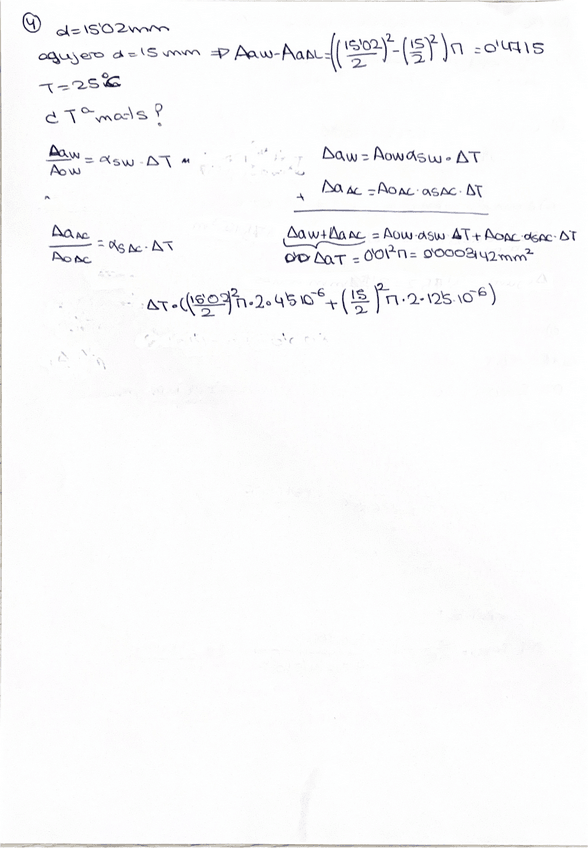 ④ d=15'02mm
agujero d=15mm ⇒ Aaw-AaΔC=((15'02/2)²-(15/2)²)π=0'4715
T=25ºC
¿Tª mals?
Δaw/Aow=αsw·ΔT
Δaw=Aowαsw·ΔT
+ ΔaΔC=AoΔC·αsΔC·ΔT
ΔaΔC/AoΔC=αsΔC·ΔT
Δaw+ΔaΔC=Aow·αsw ΔT+AoΔC·αsΔC·ΔT
ΔaT=0'01²π=0'0003142mm²
ΔT·((15'02/2)²π·2·4'5 10⁻⁶+(15/2)²π·2·12'5·10⁻⁶)